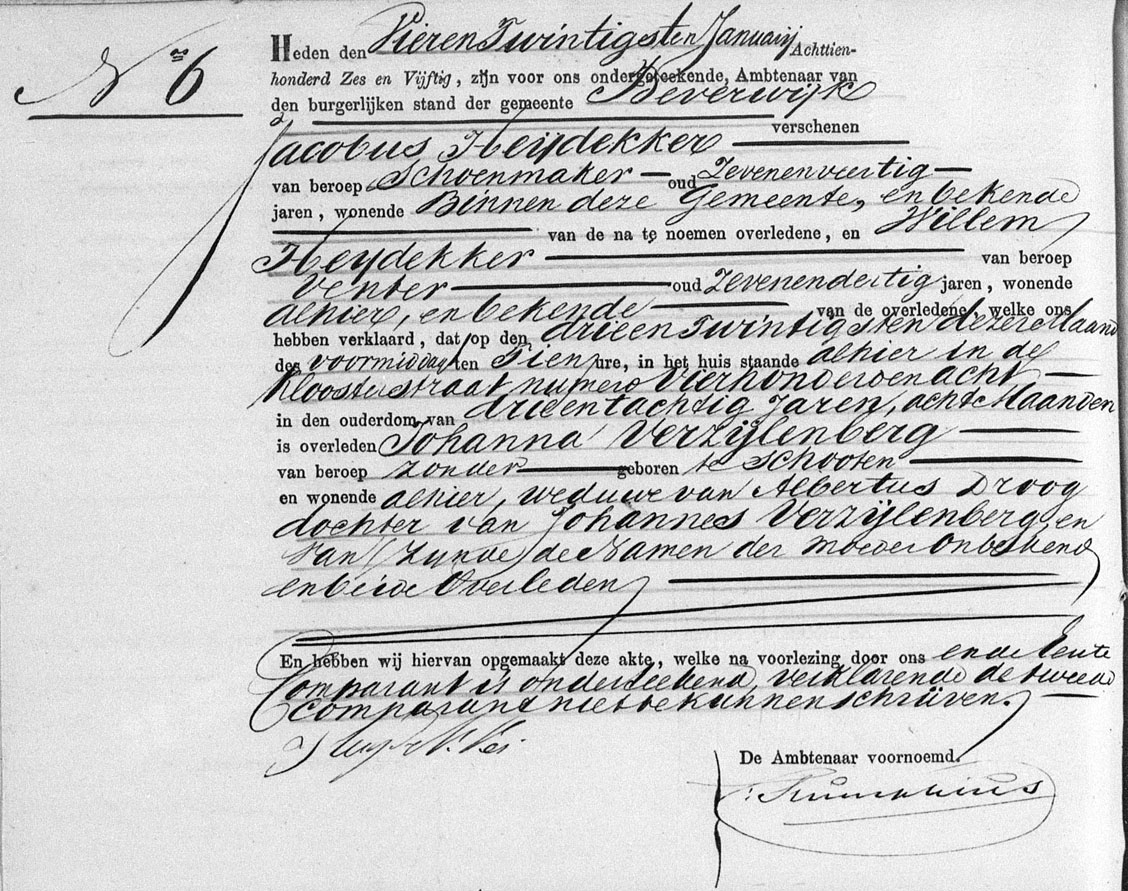 No 6
Heden den Vieren Twintigsten Januarij Achttien-
honderd Zes en Vijftig, zijn voor ons ondergeteekende, Ambtenaar van
den burgerlijken stand der gemeente Beverwijk
verschenen
Jacobus Heijdekker
van beroep Schoenmaker oud Zevenenveertig
jaren, wonende Binnen deze Gemeente, en bekende
van de na te noemen overledene, en Willem
Heijdekker van beroep
Venter oud Zevenendertig jaren, wonende
alhier, en bekende van de overledene, welke ons
hebben verklaard, dat op den drieen Twintigsten dezer Maand
des voormiddag ten Tien ure, in het huis staande alhier in de
Kloosterstraat numero Vierhonderdenacht
in den ouderdom van drieentachtig Jaren, acht Maanden
is overleden Johanna Verzijlenberg
van beroep zonder geboren te Schooten
en wonende alhier, weduwe van Albertus Droog
dochter van Johannes Verzijlenberg, en
van (zijnde) de Namen der moeder onbekend
en beide Overleden
En hebben wij hiervan opgemaakt deze akte, welke na voorlezing door ons en de Eerste
Comparant is onderteekend, verklarende de tweede
comparant niet te kunnen schrijven.
De Ambtenaar voornoemd.